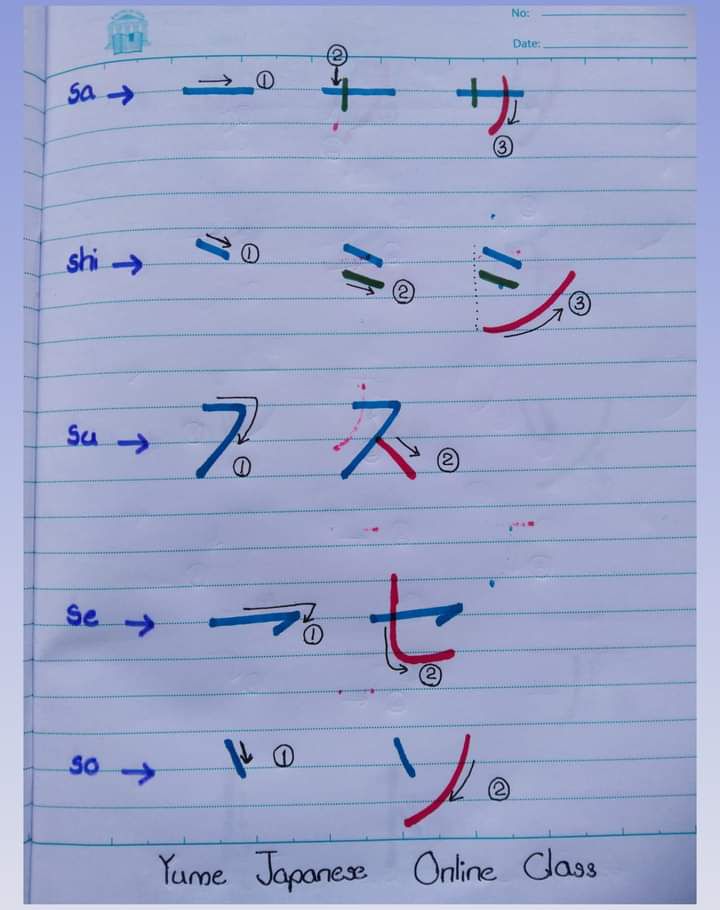 No:
Date:
sa → → ① ② ↓ ③
shi → → ① → ② シ ③
su → ① ス ②
se → ① セ ②
so → ① ソ ②
Yume Japanese Online Class